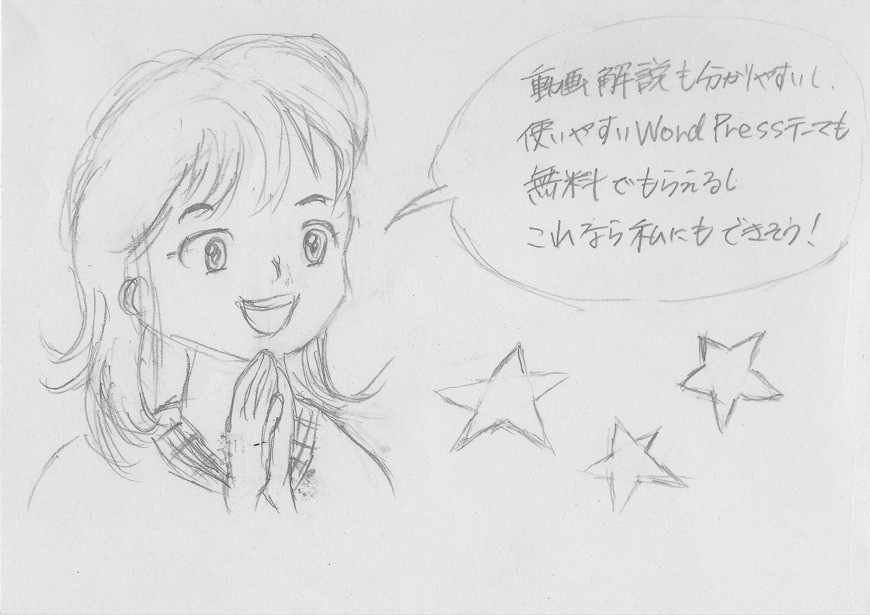 動画解説も分かりやすいし、
使いやすいWordPressテーマも
無料でもらえるし
これなら私にもできそう!